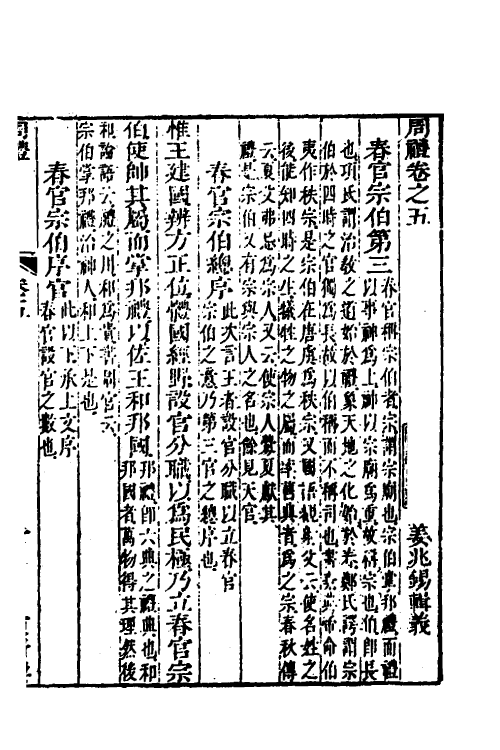 周禮卷之五
姜兆錫輯義
春官宗伯第三
春官稱宗伯者宗謂宗廟也宗伯掌邦禮而禮
以事神爲上神以宗廟爲重故稱宗也伯卽長
也項氏謂治敎之道始於禮象天地之化始於春鄭氏諤謂宗
伯於四時之官獨爲長故以伯稱而不稱司也書
命伯
夷作秩宗是宗伯在唐虞爲秩宗又國語
父云使名姓之
後能知四時之生犧牲之物之屬而率舊典者爲之宗春秋傳
云夏父弗忌爲宗人又云使宗人釁夏獻其
禮是宗伯又有宗與宗人之名也餘見天官
春官宗伯總序
此次言王者設官分職以立春官
宗伯之意乃第三官之總序也
惟王建國辨方正位體國經野設官分職以爲民極乃立春官宗
伯使帥其屬而掌邦禮以佐王和邦國
邦禮卽六典之禮典也和
邦國者萬物得其理然後
和論語云禮之用和爲貴
官云
宗伯掌邦禮治神人和上下是也
春官宗伯序官
此以下承上文序
春官設官之數也
周禮
卷五